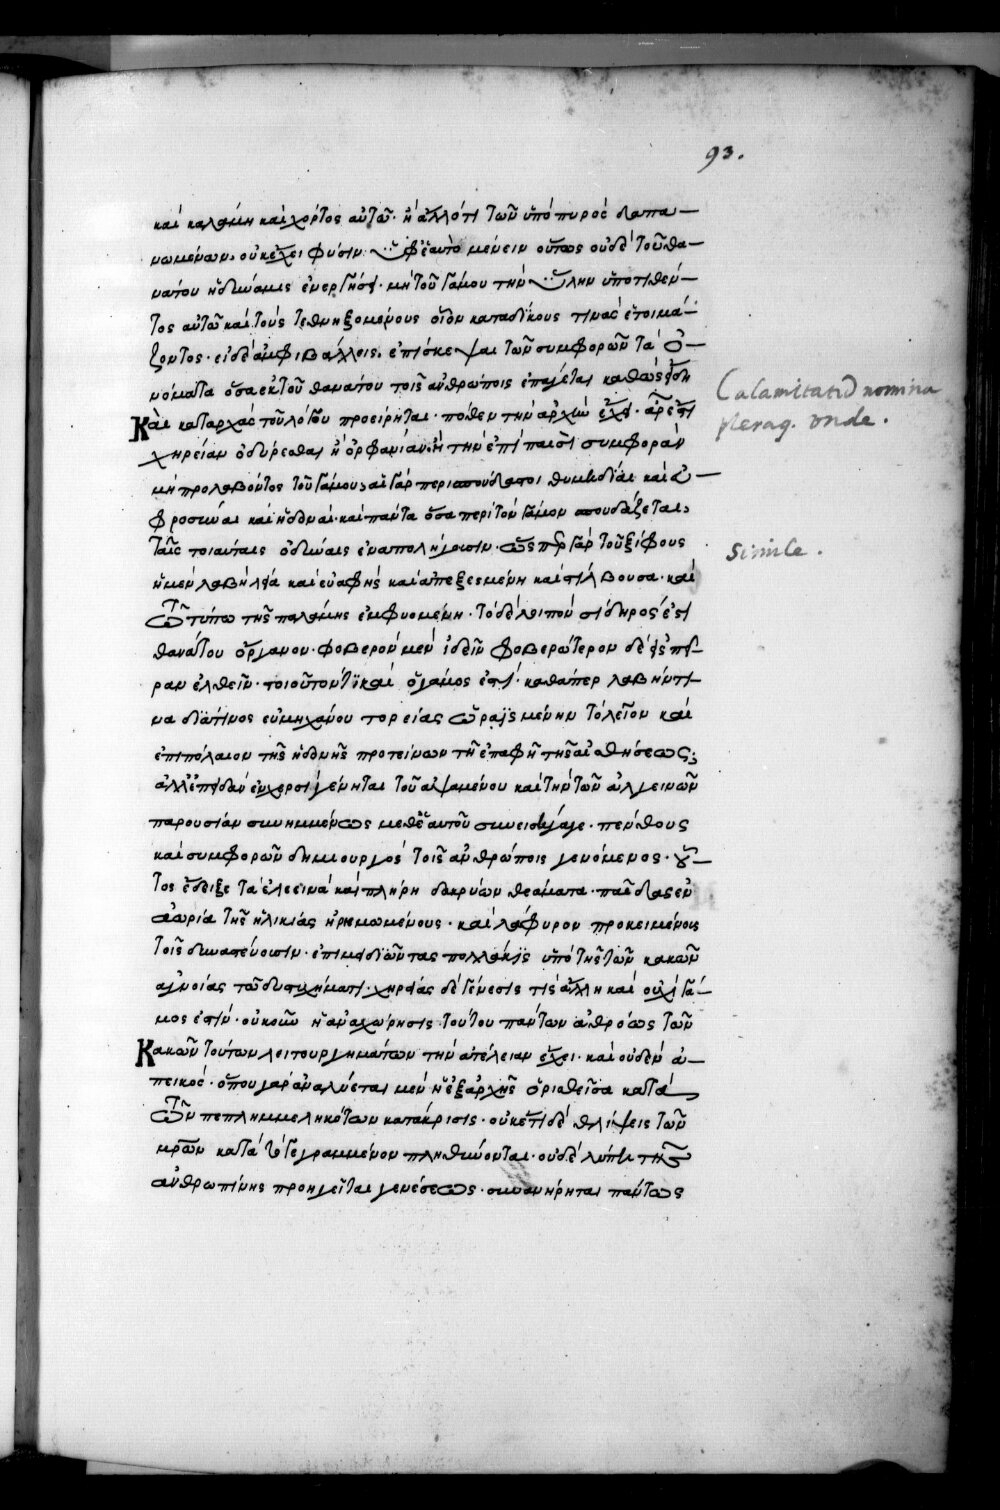 93.
καὶ καλάμη καὶ χόρτος αὐτῶ· ἢ ἀλλότι τῶν ὑπὸ πυρὸς δαπα—
νωμένων, οὐκ ἔχει φύσιν ἐφ' ἑαυτὸ μένειν οὕτως οὐδὲ τοῦ θα—
νάτου ἡ δύναμις ἐνεργήσει· μὴ τοῦ γάμου τὴν ὕλην ὑποτιθέν—
τος αὐτῶ καὶ τοὺς τεθνηξομένους οἷον καταδίκους τινὰς ἑτοιμά—
ζοντος· εἰ δὲ ἀμφιβάλλεις, ἐπίσκεψαι τῶν συμφορῶν τὰ ὀ—
νόματα ὅσα ἐκ τοῦ θανάτου τοῖς ἀνθρώποις ἐπάγεται καθὼς ἤδη
Καὶ καταρχὰς τοῦ λόγου προείρηται· πόθεν τὴν ἀρχὴν ἔχει· ἆρ' ἔστι
χηρείαν ὀδύρεσθαι ἢ ὀρφανίαν· ἢ τὴν ἐπὶ παισὶ συμφορὰν
μὴ προλαβόντος τοῦ γάμου; αἱ γὰρ περισπούδαστοι θυμηδίαι καὶ εὐ—
φροσύναι καὶ ἡδοναὶ· καὶ πάντα ὅσα περὶ τὸν γάμον σπουδάζεται,
ταῖς τοιαύταις ὀδύναις ἐναπολήγουσιν· ὥσπερ γὰρ τοῦ ξίφους
ἡ μὲν λαβὴ λεία καὶ εὐαφὴς καὶ ἀπεξεσμένη καὶ στίλβουσα· καὶ
τῶ τύπω τῆς παλάμης ἐμφυομένη· τὸ δὲ λειπὸν σίδηρος ἐστι
θανάτου ὄργανον· φοβερὸν μὲν ἰδεῖν φοβερώτερον δὲ εἰς πεῖ—
ραν ἐλθεῖν· τοιοῦτόν τι καὶ ὁ γάμος ἐστί· καθάπερ λαβήν τι—
να διά τινος εὐμηχάνου τορείας ὡραϊσμένην τὸ λεῖον καὶ
ἐπιπόλαιον τῆς ἡδονῆς προτείνων τῆ ἐπαφῆ τῆς αἰσθήσεως;
ἀλλ' ἐπειδὰν ἐν χερσὶ γένηται τοῦ ἁψαμένου καὶ τὴν τῶν ἀλγεινῶν
παρουσίαν συνημμένως μεθ' ἑαυτοῦ συνεισήγαγε· πένθους
καὶ συμφορῶν δημιουργὸς τοῖς ἀνθρώποις γενόμενος· οὗ—
τος ἔδειξε τὰ ἐλεεινὰ καὶ πλήρη δακρύων θεάματα· παῖδας ἐν
ἀωρία τῆς ἡλικίας ἠρημωμένους· καὶ λάφυρον προκειμένους
τοῖς δυναστεύουσιν· ἐπιμειδιῶντας πολλάκις ὑπὸ τῆς τῶν κακῶν
ἀγνοίας τῶ δυστυχήματι· χηρείας δὲ γένεσις τίς ἄλλη καὶ οὐχὶ γά—
μος ἐστίν· οὐκοῦν ἡ ἀναχώρησις τούτου πάντων ἀθρόως τῶν
Κακῶν τούτων λειτουργημάτων τὴν ἀτέλειαν ἔχει· καὶ οὐδὲν ἀ—
πεικός· ὅπου γὰρ ἀναλύεται μὲν ἡ ἐξαρχῆς ὁρισθεῖσα κατὰ
τῶν πεπλημμεληκότων κατάκρισις· οὐκέτι δὲ θλίψεις τῶν
μητέρων κατὰ τὸ γεγραμμένον πληθύνονται· οὐδὲ λύπη τῆς
ἀνθρωπίνης προηγεῖται γενέσεως· συνανήρηται πάντως
Calamitatū nomina
pleraq. unde.
Simile.